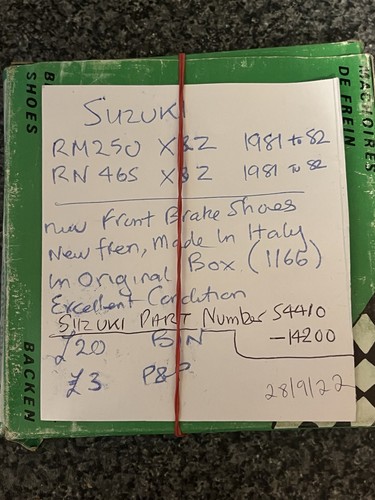 SUZUKI
RM250 X&Z 1981 to 82
RN 465 X&Z 1981 to 82
new Front Brake Shoes
New fren, Made In Italy
In Original Box (1166)
Excellent Condition
SUZUKI PART Number 54410
-14200
£20 BIN
£3 P&P
28/9/22
SHOES
BACKEN
MACHOIRES
DE FREIN